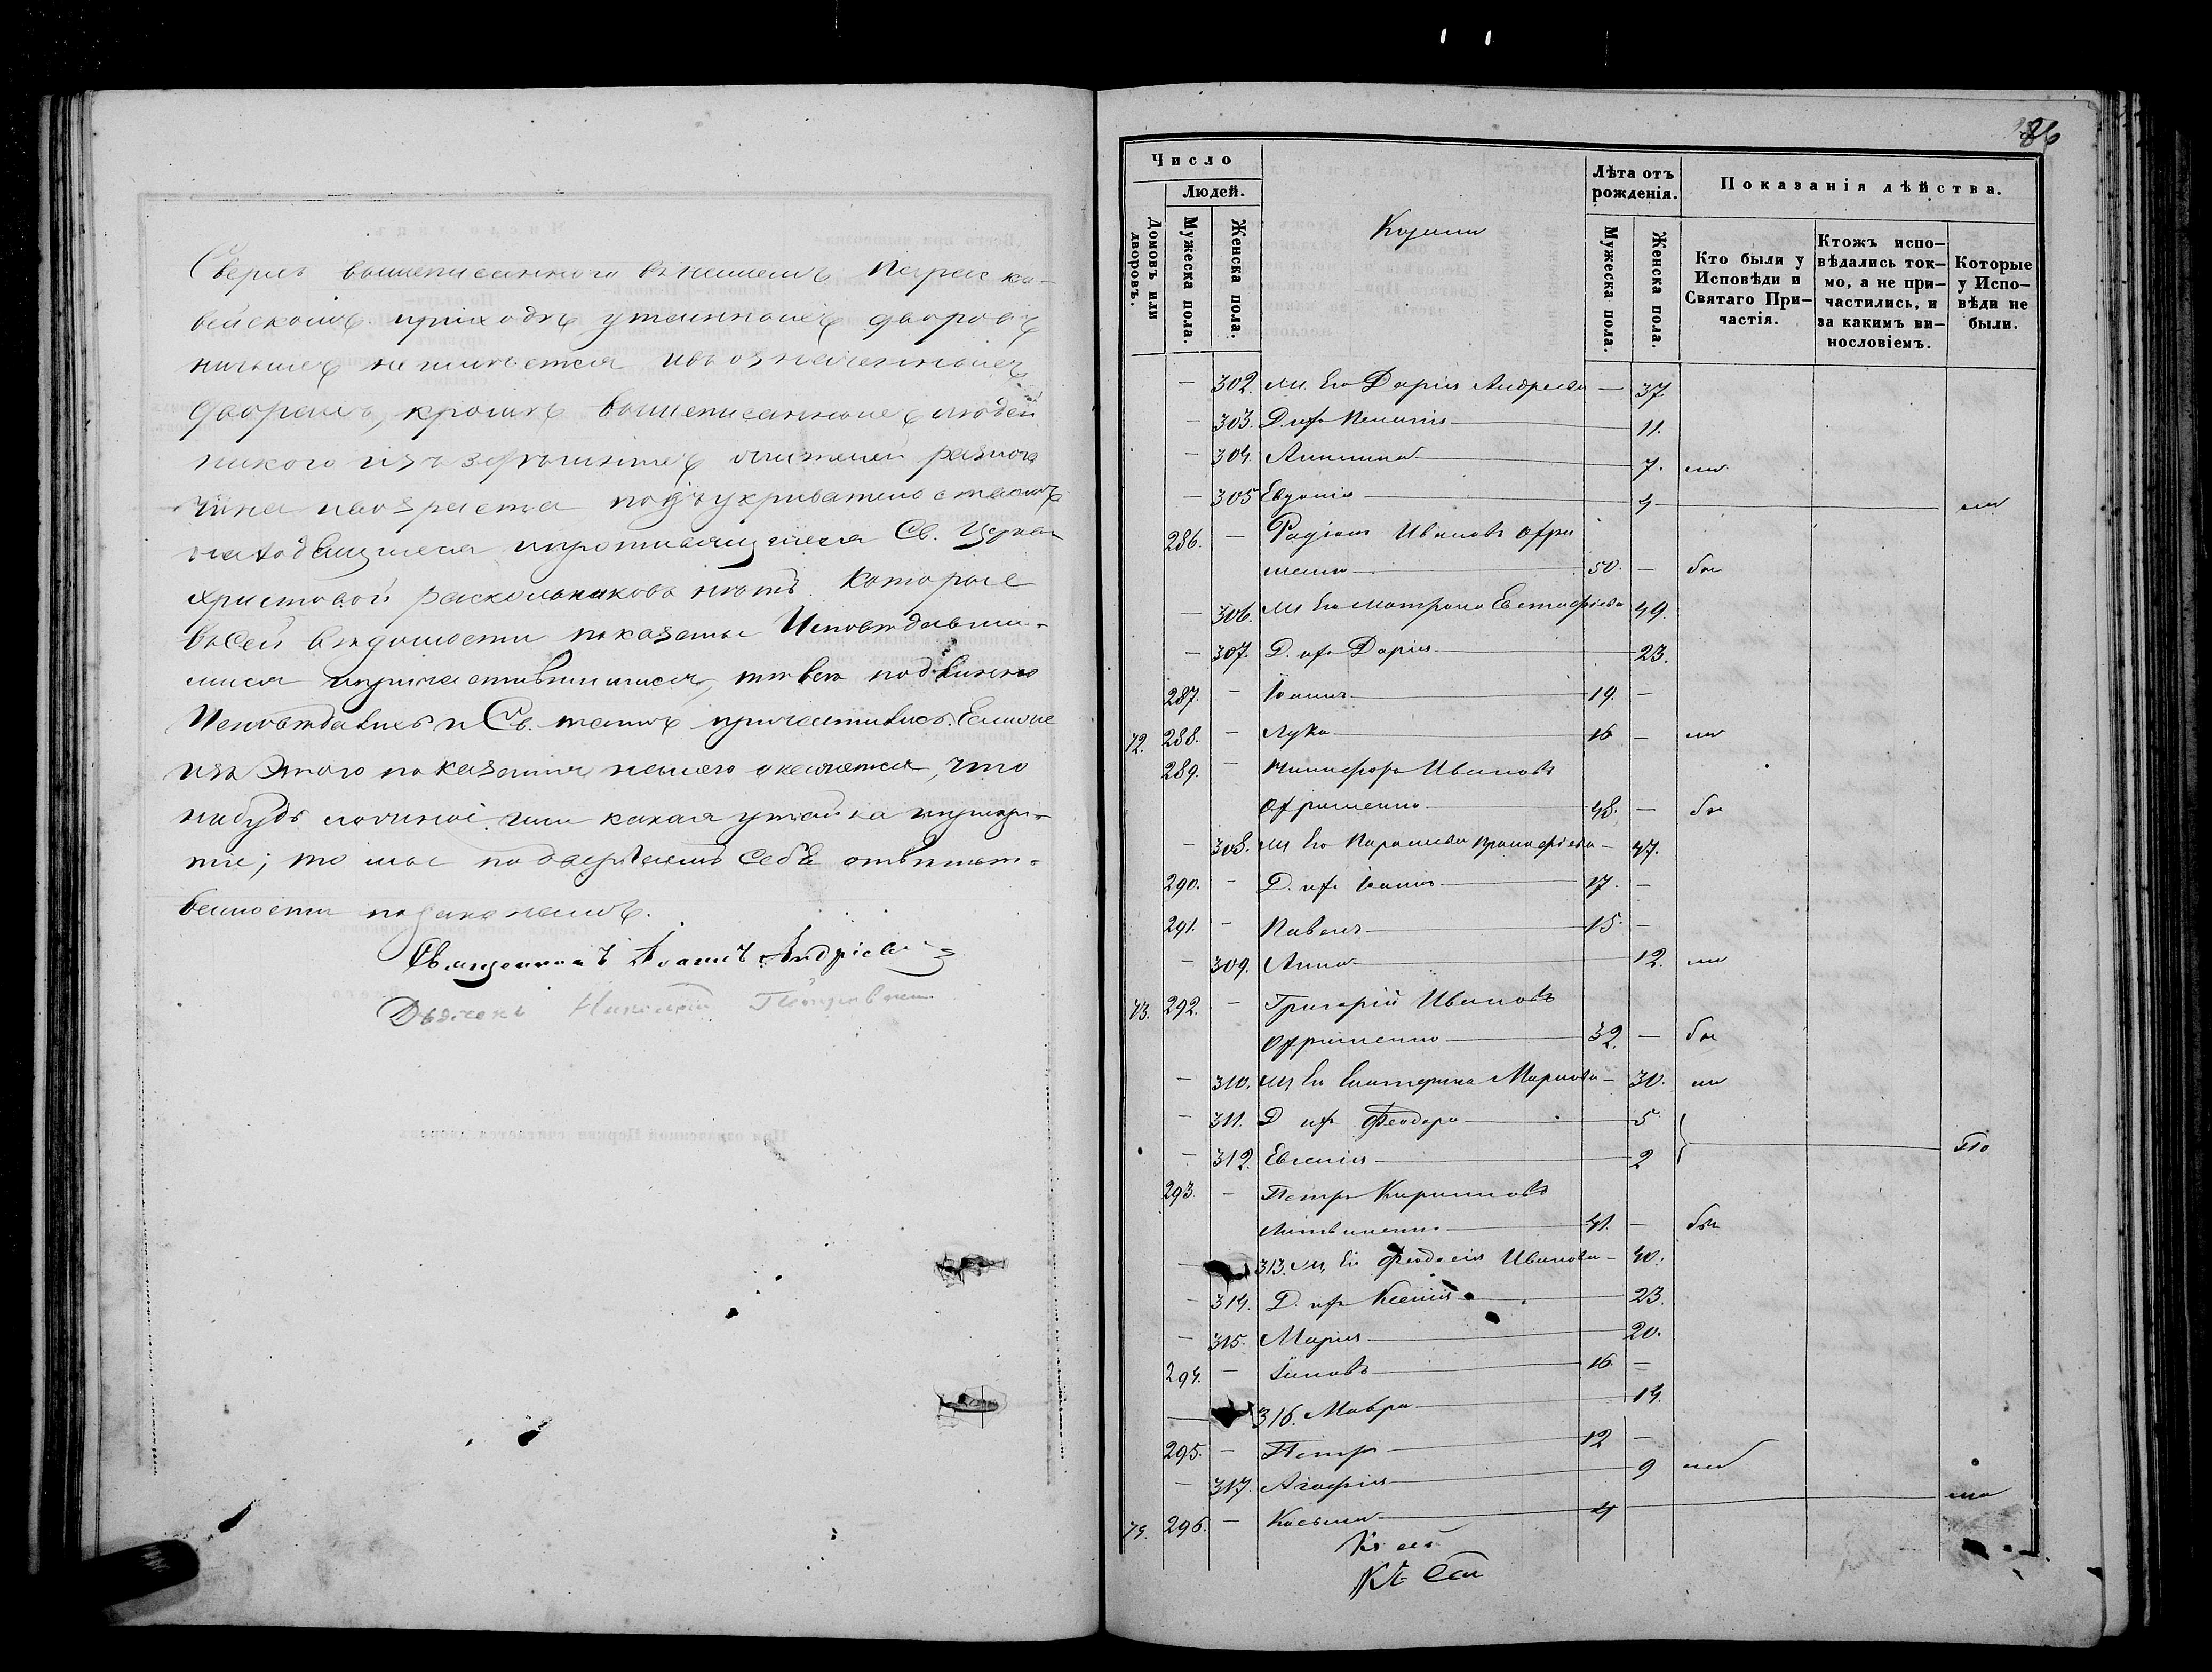 Сверхъ вышеписаннаго въ нашемъ Параске-
вейскомъ приходѣ утаенныхъ дворовъ
ничьихъ не имѣется и въ означенныхъ
дворахъ, кромѣ вышеписанныхъ людей
никого изъ здѣшнихъ жителей разнаго
чина и возраста подъ укривательствомъ
находящихся и противящихся Св. Церкви
Христовой раскольниковъ нѣтъ. Которые
въ сей вѣдомости показаны Исповѣдавши-
мися и причастившимися, тѣ всѣ подлинно
Исповѣдались и Св. таинъ причастились. Если же
изъ этого показанія нашего окажется, что
нибудь ложное или какая утайка и прикры-
тіе; то мы подвергаемъ себя отвѣтст-
венности по законамъ.
Священникъ Іоаннъ Андріевъ
Дьячекъ Николай
86
Число
Людей.
Домовъ или дворовъ.
Мужеска пола.
Женска пола.
Лѣта отъ рожденія.
Мужеска пола.
Женска пола.
Показанія дѣйства.
Кто были у Исповѣди и Святаго При-частія.
Ктожъ испо-вѣдались ток-мо, а не при-частились, и за какимъ ви-нословіемъ.
Которые у Испо-вѣди не были.
— 302. Ж. Его Дарія Андреева — 37.
— 303. Д. ихъ 11.
— 304. 7.
— 305 Евдокія 4
286. — Родіонъ Ивановъ Офри
менко 50. — бы
— 306. Ж. Его Матрона Евстафіева 49.
— 307. Д. ихъ Дарія 23.
287. — Іоаннъ 19. —
72. 288. — Лука 16 — ли
289. — Никифоръ Ивановъ
Офрименко 48. — бы
— 308. Ж. Его Параскева — 47.
290. — Д. ихъ Іоаннъ 17. —
291. — Павелъ 15. —
— 309. Анна 12. ли
73. 292. — Григорій Ивановъ
Офрименко 32. — бы
— 310. Ж. Его Екатерина Маркова — 30. ли
— 311. Д ихъ Феодора 5
— 312. Евгенія 2
293. — Петръ Кирилловъ
Литвиненко 41. — бы
— 313. Ж. Его Феодосія Иванова — 40.
— 314. Д. ихъ Ксенія 23.
— 315. Марія 20.
294. — 16 —
— 316. Мавра 14.
295. — Петръ 12 —
— 317. Агафія 9 ли
74. 296. — Косьма 4